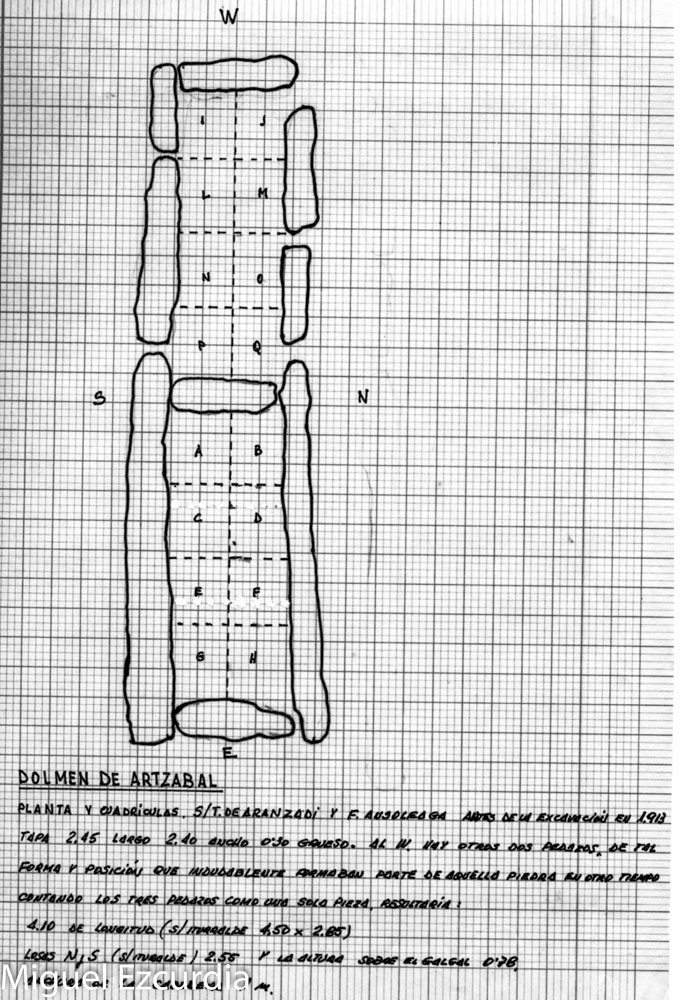 W
I J
L M
N O
P Q
S N
A B
C D
E F
G H
E
DOLMEN DE ARTZABAL
PLANTA Y CUADRICULAS. S/T. DE ARANZADI Y F. ANSOLEAGA ANTES DE LA EXCAVACIÓN EN 1.913
TAPA 2,45 LARGO 2,40 ANCHO 0'30 GRUESO. AL W. HAY OTROS DOS PEDAZOS, DE TAL
FORMA Y POSICIÓN, QUE INDUDABLENTE FORMABAN PARTE DE AQUELLA PIEDRA EN OTRO TIEMPO
CONTANDO LOS TRES PEDAZOS COMO UNA SOLA PIEZA, RESULTARIA:
4.10 DE LONGITUD (S/ITURRALDE 4,50 x 2.85)
LOSAS N, S (S/ITURRALDE) 2.55 Y LA ALTURA SOBRE EL GALGAL 0'78,
DE LA M.
Miguel Ezcurdia